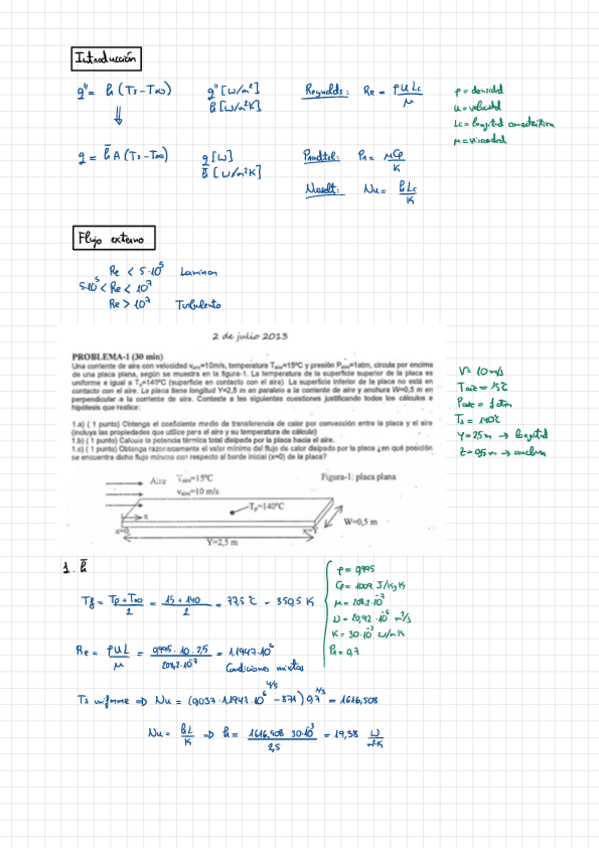 Introducción
q" = h (Ts - T∞)
q" [W/m²]
h [W/m²K]
Reynolds: Re = ρ U Lc / μ
ρ = densidad
u = velocidad
Lc = longitud característica
μ = viscosidad
q = h̄ A (Ts - T∞)
q [W]
h̄ [W/m²K]
Prandtel: Pr = μ Cp / K
Nusselt: Nu = h Lc / K
Flujo externo
Re < 5·10⁵ Laminar
5·10⁵ < Re < 10⁷
Re > 10⁷ Turbulento
2 de julio 2013
PROBLEMA-1 (30 min)
Una corriente de aire con velocidad vaire=10m/s, temperatura Taire=15ºC y presión Paire=1atm, circula por encima
de una placa plana, según se muestra en la figura-1. La temperatura de la superficie superior de la placa es
uniforme e igual a Tp=140ºC (superficie en contacto con el aire). La superficie inferior de la placa no está en
contacto con el aire. La placa tiene longitud Y=2,5 m en paralelo a la corriente de aire y anchura W=0,5 m en
perpendicular a la corriente de aire. Conteste a las siguientes cuestiones justificando todos los cálculos e
hipótesis que realice:
1.a) ( 1 punto) Obtenga el coeficiente medio de transferencia de calor por convección entre la placa y el aire
(incluya las propiedades que utilice para el aire y su temperatura de cálculo)
1.b) ( 1 punto) Calcule la potencia térmica total disipada por la placa hacia el aire.
1.c) ( 1 punto) Obtenga razonadamente el valor mínimo del flujo de calor disipado por la placa ¿en qué posición
se encuentra dicho flujo mínimo con respecto al borde inicial (x=0) de la placa?
V = 10 m/s
Taire = 15ºC
Paire = 1 atm
Ts = 140ºC
Y = 2,5 m → longitud
Z = 0,5 m → anchura
Aire
Taire=15ºC
vaire=10 m/s
Figura-1: placa plana
Tp=140ºC
x
x=0
x=Y
W=0,5 m
Y=2,5 m
1. h̄
Tf = (Tp + T∞) / 2 = (15 + 140) / 2 = 77,5 ºC = 350,5 K
ρ = 0,995
Cp = 1009 J/Kg K
μ = 208,2·10⁻⁷
υ = 20,92·10⁻⁶ m²/s
K = 30·10⁻³ W/mK
Pr = 0,7
Re = ρ U L / μ = 0,995·10·2,5 / 208,2·10⁻⁷ = 1,1947·10⁶
Condiciones mixtas
Ts uniforme ⇒ Nu = (0,037·1,1947·10⁶ ^4/5 - 871) 0,7^1/3 = 1616,508
Nu = h L / K ⇒ h = 1616,508·30·10⁻³ / 2,5 = 19,38 W/m²K